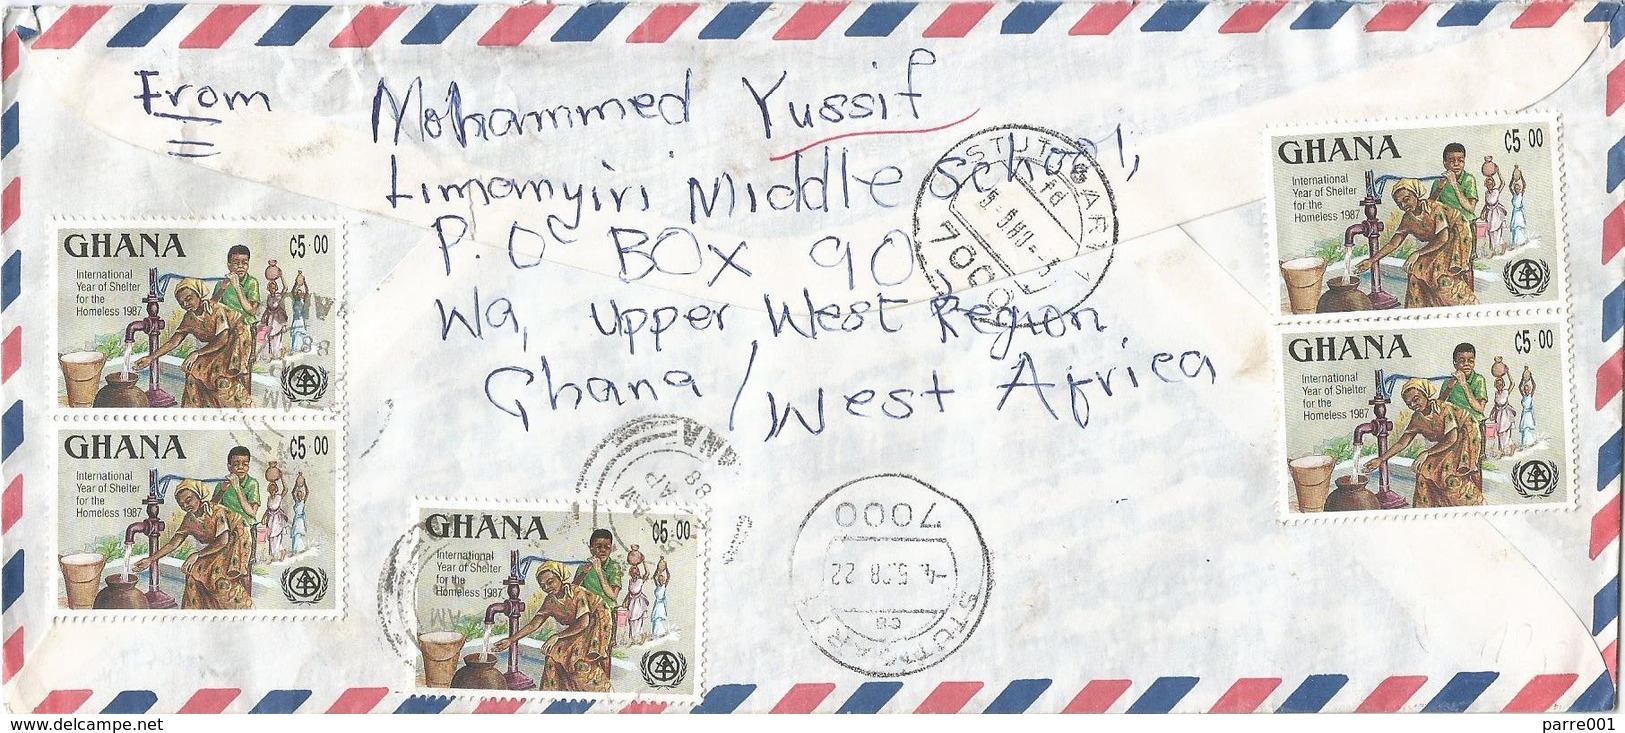 From Mohammed Yussif
Limanyiri Middle School,
P.O. BOX 90,
Wa, Upper West Region
Ghana/West Africa
GHANA ₵5·00
International
Year of Shelter
for the
Homeless 1987
GHANA ₵5·00
International
Year of Shelter
for the
Homeless 1987
GHANA ₵5·00
International
Year of Shelter
for the
Homeless 1987
GHANA ₵5·00
International
Year of Shelter
for the
Homeless 1987
GHANA ₵5·00
International
Year of Shelter
for the
Homeless 1987
STUTTGART
7000
7000
STUTTGART
delcampe.net
parre001